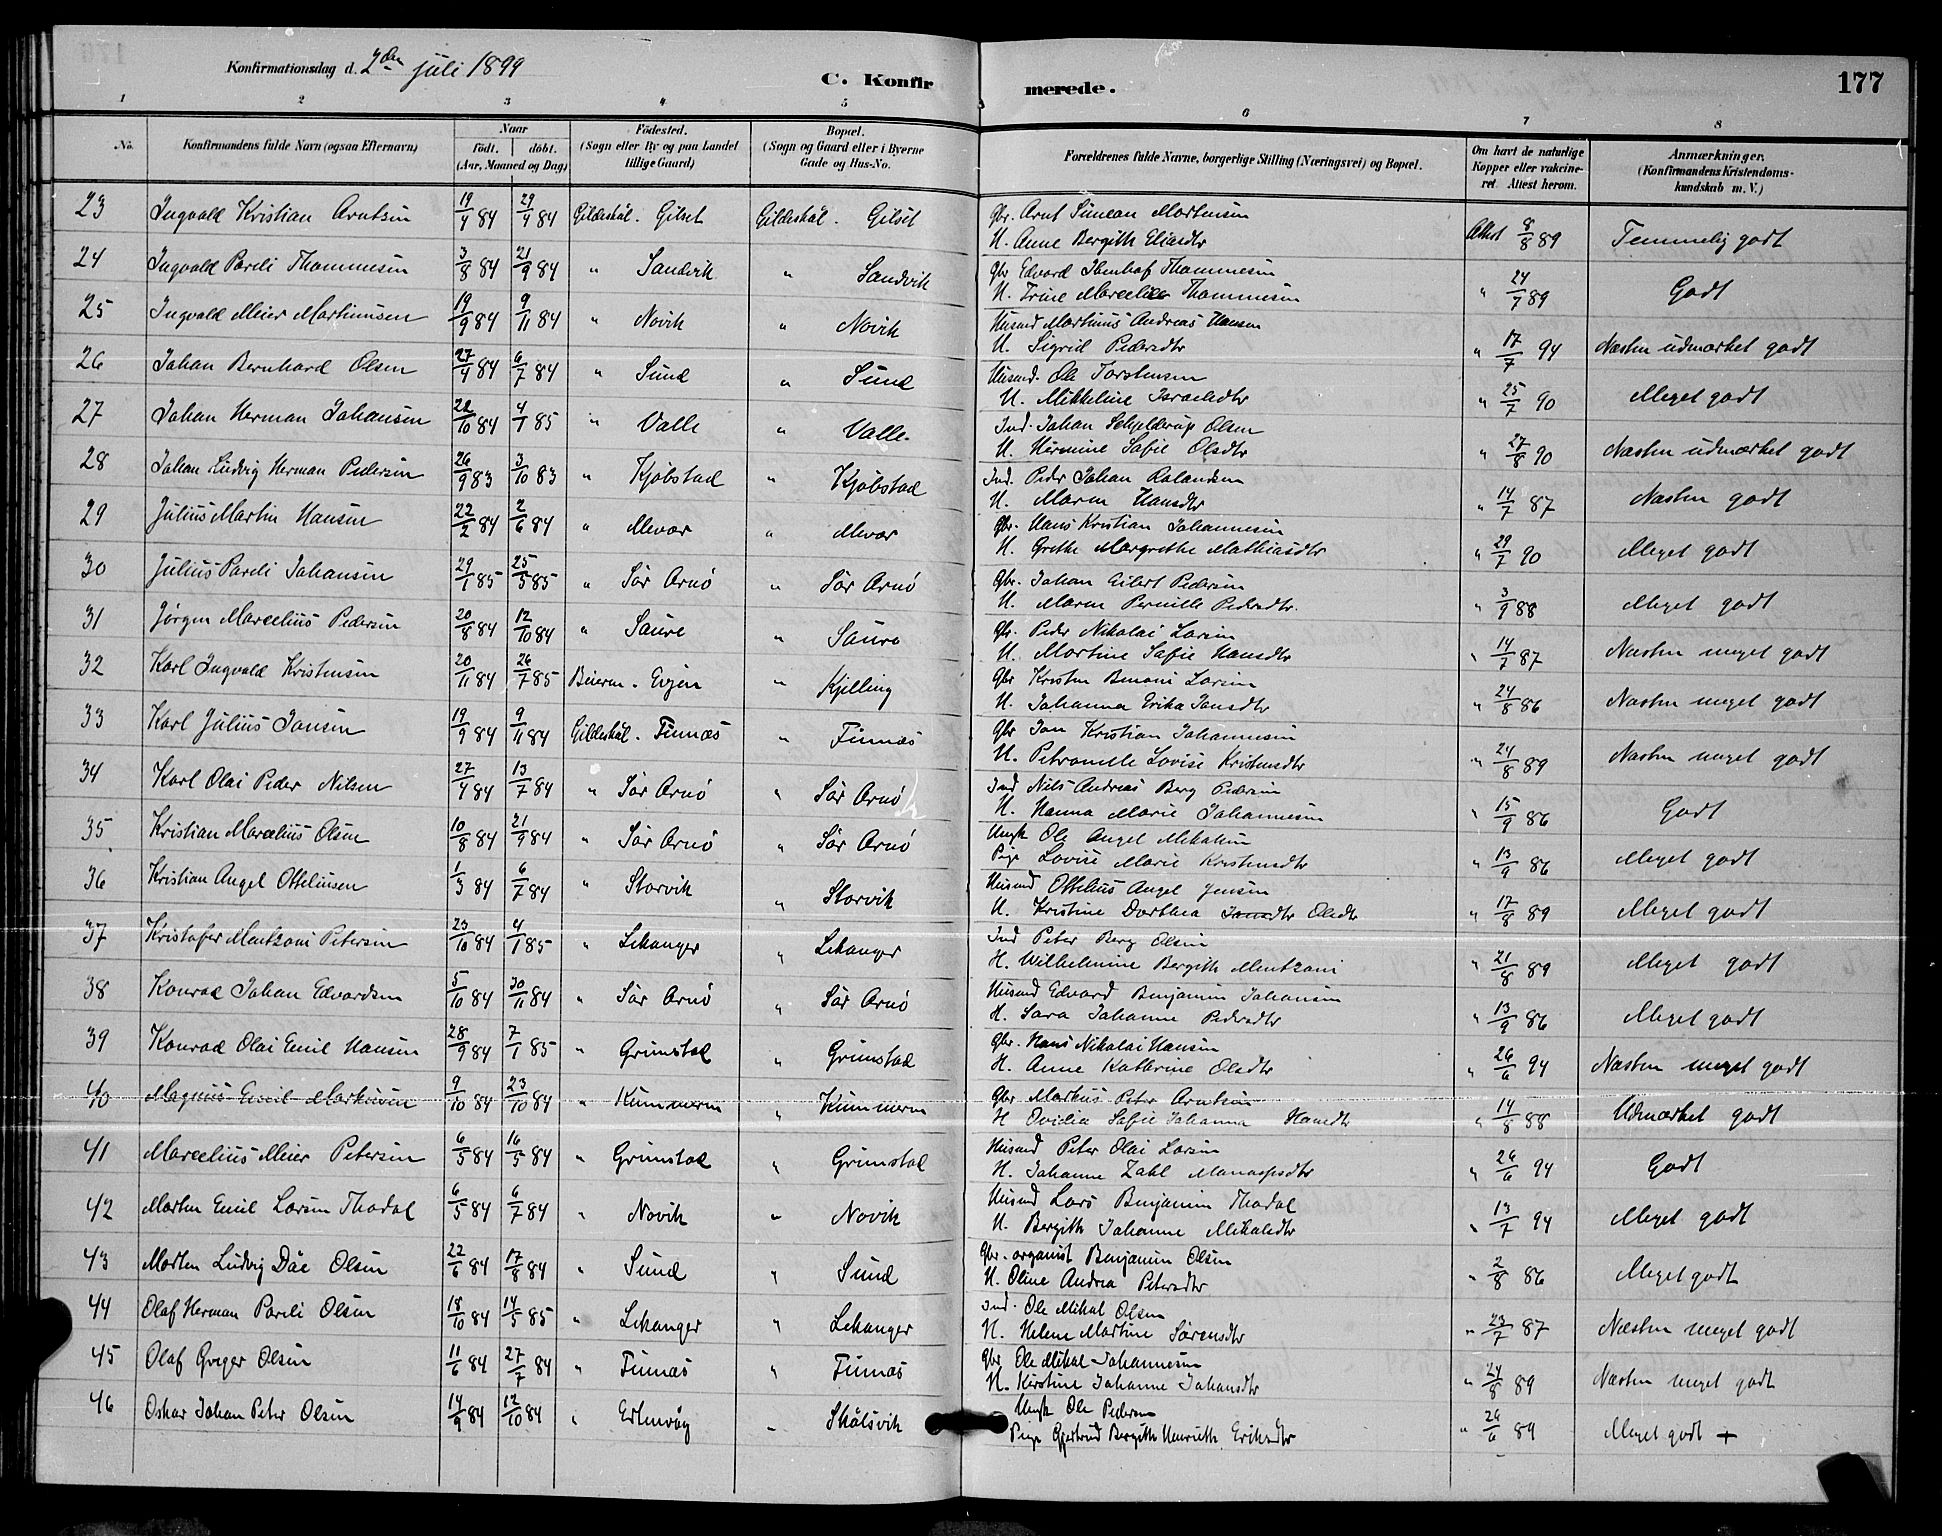 Konfirmationsdag d. 2den juli 1899
C. Konfirmerede.
177
1 2 3 4 5 6 7 8
No. Konfirmandens fulde Navn (ogsaa Efternavn) Naar födt. döbt. (Aar, Maaned og Dag) Födested. (Sogn eller By og paa Landet tillige Gaard) Bopæl. (Sogn og Gaard eller i Byerne Gade og Hus-No. Forældrenes fulde Navne, borgerlige Stilling (Næringsvei) og Bopæl. Om havt de naturlige Kopper eller vakcineret. Attest herom. Anmærkninger. (Konfirmandens Kristendomskundskab m. V.)
23 Ingvald Kristian Arntsen 19/4 84 29/4 84 Gildeskål. Gilset Gildeskål. Gilset Gbr. Arnt Simean Mortensen Attest 8/8 89 Temmelig godt
H. Anne Bergith Eliasdtr
24 Ingvald Pareli Thommesen 3/8 84 21/9 84 " Sandvik " Sandvik Gbr Edvard Ibenhof Thommesen " 24/7 89 Godt
H. Trine Marcelie Thommesen
25 Ingvald Meier Martinusen 19/9 84 9/11 84 " Novik " Novik Husmd Martinus Andreas Hansen " 17/7 94 Næsten udmærket godt
H. Sigrid Pedersdtr
26 Johan Bernhard Olsen 27/4 84 6/7 84 " Sund " Sund Husmd. Ole Torstensen " 25/7 90 Meget godt
H. Mikkeline Israelsdtr
27 Johan Herman Johansen 22/10 84 4/1 85 " Valle " Valle. Ind. Johan Schjelderup Olsen " 27/8 90 Næsten udmærket godt
H. Hermine Sofie Olsdtr
28 Johan Ludvig Herman Pedersen 26/9 83 3/10 83 " Kjøbstad " Kjøbstad Ind. Peder Johan Rolandsen " 14/7 87 Næsten godt
H. Maren Hansdtr
29 Julius Martin Hansen 22/2 84 2/6 84 " Mevær " Mevær Gbr. Hans Kristian Johannesen " 29/7 90 Meget godt
H. Grethe Margrethe Mathiasdtr
30 Julius Pareli Johansen 29/1 85 25/5 85 " Sør Arnø " Sør Arnø Gbr. Johan Eilert Pedersen " 3/9 88 Meget godt
H. Maren Pernille Pedersdtr.
31 Jørgen Marcelius Pedersen 20/8 84 12/10 84 " Saure " Saura Gbr. Peder Nikolai Larsen " 14/7 87 Næsten meget godt
H. Martine Sofie Hansdtr
32 Karl Ingvald Kristensen 20/11 84 26/7 85 Beiern. Evjen " Kjelling Gbr Kristen Benoni Larsen " 24/8 86 Næsten meget godt
H. Johanna Erika Jonsdtr
33 Karl Julius Jonsen 19/9 84 9/11 84 Gildeskål. Finnæs " Finnæs Gbr Jon Kristian Johannesen " 24/8 89 Næsten meget godt
H. Petronelle Lovise Kristensdtr
34 Karl Olai Peder Nilsen 27/4 84 13/7 84 " Sør Arnø " Sør Arnø Ind Nils Andreas Berg Pedersen " 15/9 86 Godt
H. Hanna Marie Johannesen
35 Kristian Marcelius Olsen 10/8 84 21/9 84 " Sør Arnø " Sør Arnø Ungk Ole Angel Mikalsen " 13/9 86 Meget godt
Pige Lovise Marie Kristensdtr
36 Kristian Angel Ottelinsen 1/3 84 6/7 84 " Storvik " Storvik Husmd Ottelius Angel Jensen " 17/8 89 Meget godt
H. Kristine Dorthea Jonsdtr Olsdtr
37 Kristofer Mentzoni Petersen 23/10 84 4/1 85 " Lekanger " Lekanger Ind Peter Berg Olsen " 21/8 89 Meget godt
H. Wilhelmine Bergith Mentzoni
38 Konrad Johan Edvardsen 5/10 84 30/11 84 " Sør Arnø " Sør Arnø Husmd Edvard Benjamin Johansen " 13/9 86 Meget godt
H. Sara Johanne Pedersdtr
39 Konrad Olai Emil Hansen 28/9 84 7/1 85 " Grimstad " Grimstad Gbr. Hans Nikolai Hansen " 26/6 94 Næsten meget godt
H. Anne Katherine Olsdtr
40 Magnus Emil Markusen 9/10 84 23/10 84 " Kunnarn " Kunnarn Gbr Markus Peter Arntsen " 14/8 88 Udmærket godt
H Ovidia Sofie Johanna Hansdtr
41 Marcelius Meier Petersen 6/5 84 16/5 84 " Grimstad " Grimstad Husmd Peter Olai Larsen " 26/6 94 Godt
H. Johanne Zahl
42 Morten Emil Larsen Thodal 6/5 84 6/7 84 " Novik " Novik Husmd Lars Benjamin Thodal " 13/7 94 Meget godt
H. Bergith Johanne Mikalsdtr
43 Morten Ludvig Dåe Olsen 22/6 84 17/8 84 " Sund " Sund Gbr. organist Benjamin Olsen " 2/8 86 Meget godt
H. Oline Andrea Petersdtr
44 Olaf Herman Pareli Olsen 18/10 84 14/5 85 " Lekanger " Lekanger Ind. Ole Mikal Olsen " 23/7 87 Næsten meget godt
H. Helene Martine Sørensdtr
45 Olaf Greger Olsen 11/6 84 27/7 84 " Finnæs " Finnæs Gbr Ole Mikal Johannesen " 24/8 89 Næsten meget godt
H. Kirstine Johanne Johansdtr
46 Oskar Johan Peter Olsen 14/9 84 12/10 84 " Ertenvåg " Skålsvik Ungk Ole Pedersen " 26/6 89 Meget godt +
Pige Gjertrud Bergitte Henriette Eriksdtr